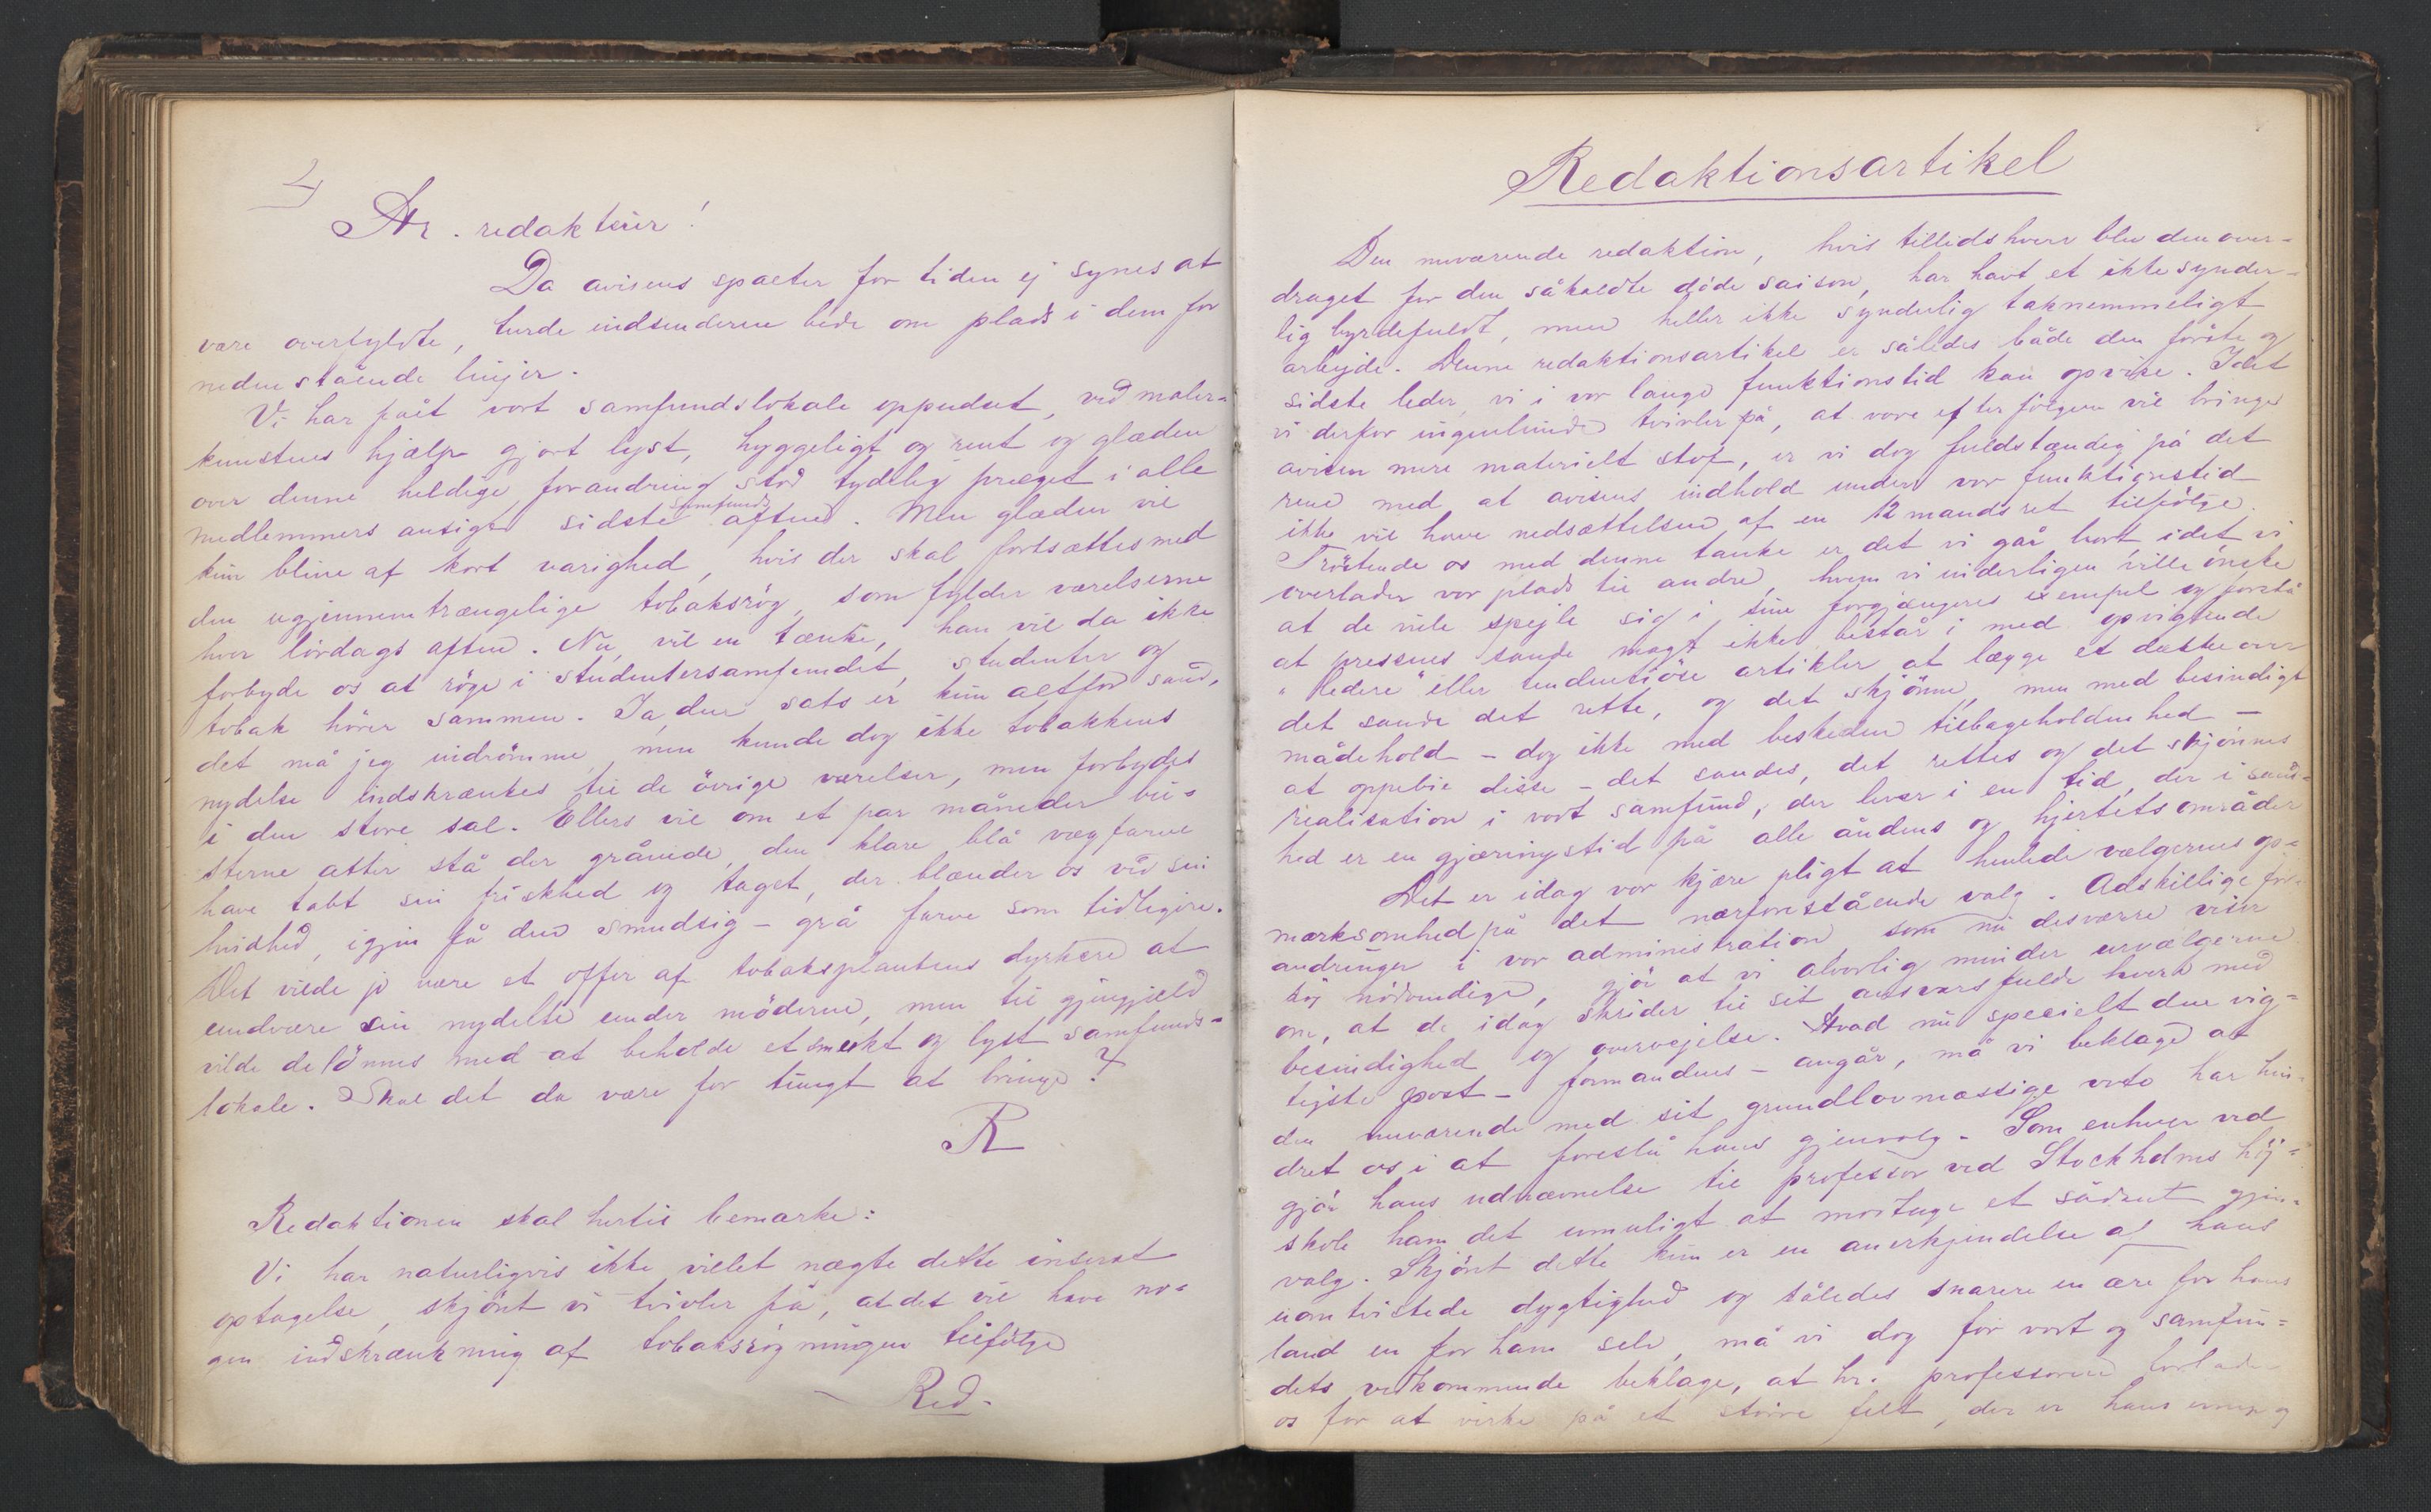 4
Hr. redakteur!
Da avisens spalter for tiden ej synes at
være overfyldte, turde indsenderen bede om plads i dem for
nedenstående linjer.
Vi har fåt vort samfundslokale oppudset, ved maler-
kunstens hjælp gjort lyst, hyggeligt og rent og glæden
over denne heldige forandring stod tydelig præget i alle
medlemmers ansigter sidste samfunds aftend. Men glæden vil
kun blive af kort varighed, hvis der skal fortsættes med
den ugjennemtrængelige tobaksrøg, som fylder værelserne
hver lördags aften. Nu, vil en tænke, han vil da ikke
forbyde os at röge i studentersamfundet, studenter og
tobak hörer sammen. Ja, den sats er kun altfor sand,
det må jeg indrömme, men kunde dog ikke tobakkens
nydelse indskrænkes til de övrige værelser, men forbydes
i den store sal. Ellers vil om et par måneder bü-
sterne atter stå der grånede, den klare blå vægfarve
have tabt sin friskhed og taget, der blænder os ved sin
hvidhed, igjen få den smudsig-grå farve som tidligere.
Det vilde jo være et offer af tobaksplantens dyrkere at
undvære sin nydelse under möderne, men til gjengjæld
vilde de lönnes med at beholde et smukt og lyst samfunds-
lokale. Skal det da være for tungt at bringe?
R
Redaktionen skal hertil bemærke:
Vi har naturligvis ikke villet nægte dette inserat
optagelse, skjönt vi tvivler på, at det vil have no-
gen indskrænkning af tobaksrögningen tilfölge
Red.
Redaktionsartikel
Den nuværende redaktion, hvis tillidshverv blev den over-
draget for den såkaldte döde saison, har havt et ikke synder-
lig byrdefuldt, men heller ikke synderlig taknemmeligt
arbejde. Denne redaktionsartikel er således både den förste og
sidste leder, vi i vor lange funktionstid kan opvise. Idet
vi derfor ingenlunde tvivler på, at vore efterfölgere vil bringe
avisen mere materielt stof, er vi dog fuldstændig på det
rene med at avisens indhold under vor funktionstid
ikke vil have nedsættelsen af en 12 mands ret tilfölge.
Tröstende os med denne tanke er det vi går bort idet vi
overlader vor plads til andre, hvem vi inderligen ville önske
at de ville spejle sig i sine forgjængeres exempel og forstå
at pressens sande magt ikke består i med opvigtende
"ledere" eller tendentiöse artikler at lægge et dække over
det sande det rette, og det skjönne, men med besindigt
mådehold - dog ikke med beskeden tilbageholdenhed -
at oppebie disse - det sandes, det rettes og det skjönnes
realisation i vort samfund, der lever i en tid, der i sand-
hed er en gjæringstid på alle åndens og hjertets områder
Det er idag vor kjære pligt at henlede vælgernes op-
mærksomhed på det nærforestående valg. Adskillige for-
andringer i vor administration, som nu desværre viser
sig nödvendige, gjör at vi alvorlig minder urvælgerne
om, at de idag skrider til sit ansvarsfulde hverv med
besindighed og overvejelse. Hvad nu specielt den vig-
tigste post - formandens - angår, må vi beklage at
den nuværende med sit grundlovmæssige veto har hin-
dret os i at foreslå hans gjenvalg. Som enhver ved
gjör hans udnævnelse til professor ved Stockholms höj-
skole ham det umuligt at modtage et sådant gjen-
valg. Skjönt dette kun er en anerkjendelse af hans
uomtvistede dygtighed og således snarere en ære for hans
land en for ham selv, må vi dog for vort og samfun-
dets vedkommende beklage, at hr. professoren forlader
os for at virke på et större felt, der er hans evner og